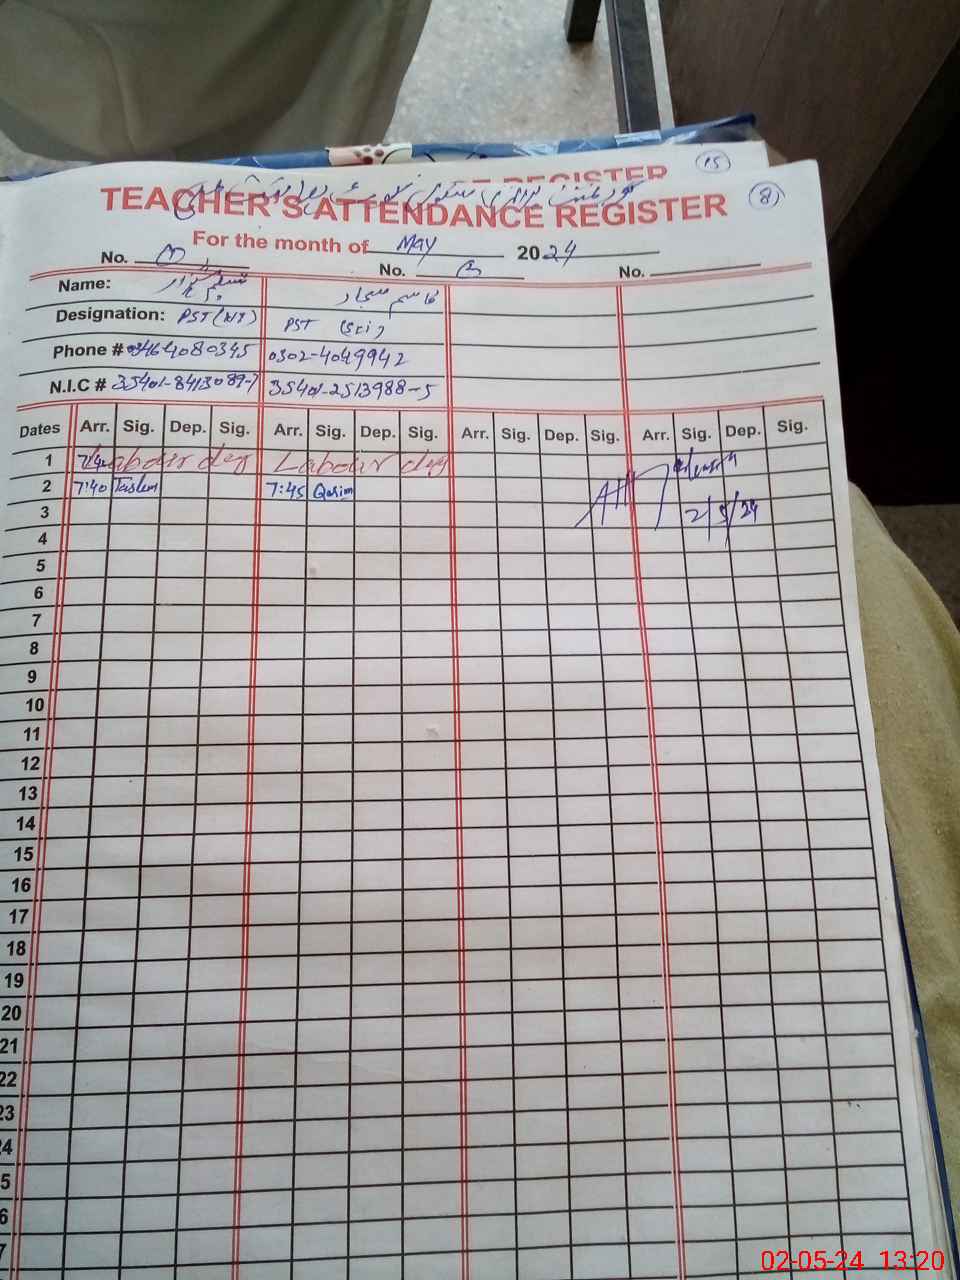 15
E REGISTER
گورنمنٹ پرائمری سکول
TEACHER'S ATTENDANCE REGISTER 8
For the month of May 2024
No. No. No.
Name: قاسم سجاد
Designation: PST (NT) PST (Sci)
Phone # 03464080345 0302-4049942
N.I.C # 35401-8413089-7 35401-2513988-5
Dates Arr. Sig. Dep. Sig. Arr. Sig. Dep. Sig. Arr. Sig. Dep. Sig. Arr. Sig. Dep. Sig.
1 Labour day Labour day
2 7:40 Taslem 7:45 Qasim
3 2/5/24
4
5
6
7
8
9
10
11
12
13
14
15
16
17
18
19
20
21
22
23
24
5
6
7
02-05-24 13:20